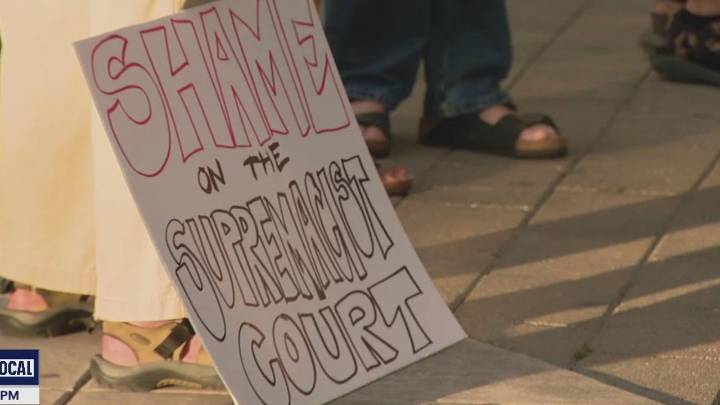 SHAME
ON THE
SUPREMACIST
COURT
OCAL
PM